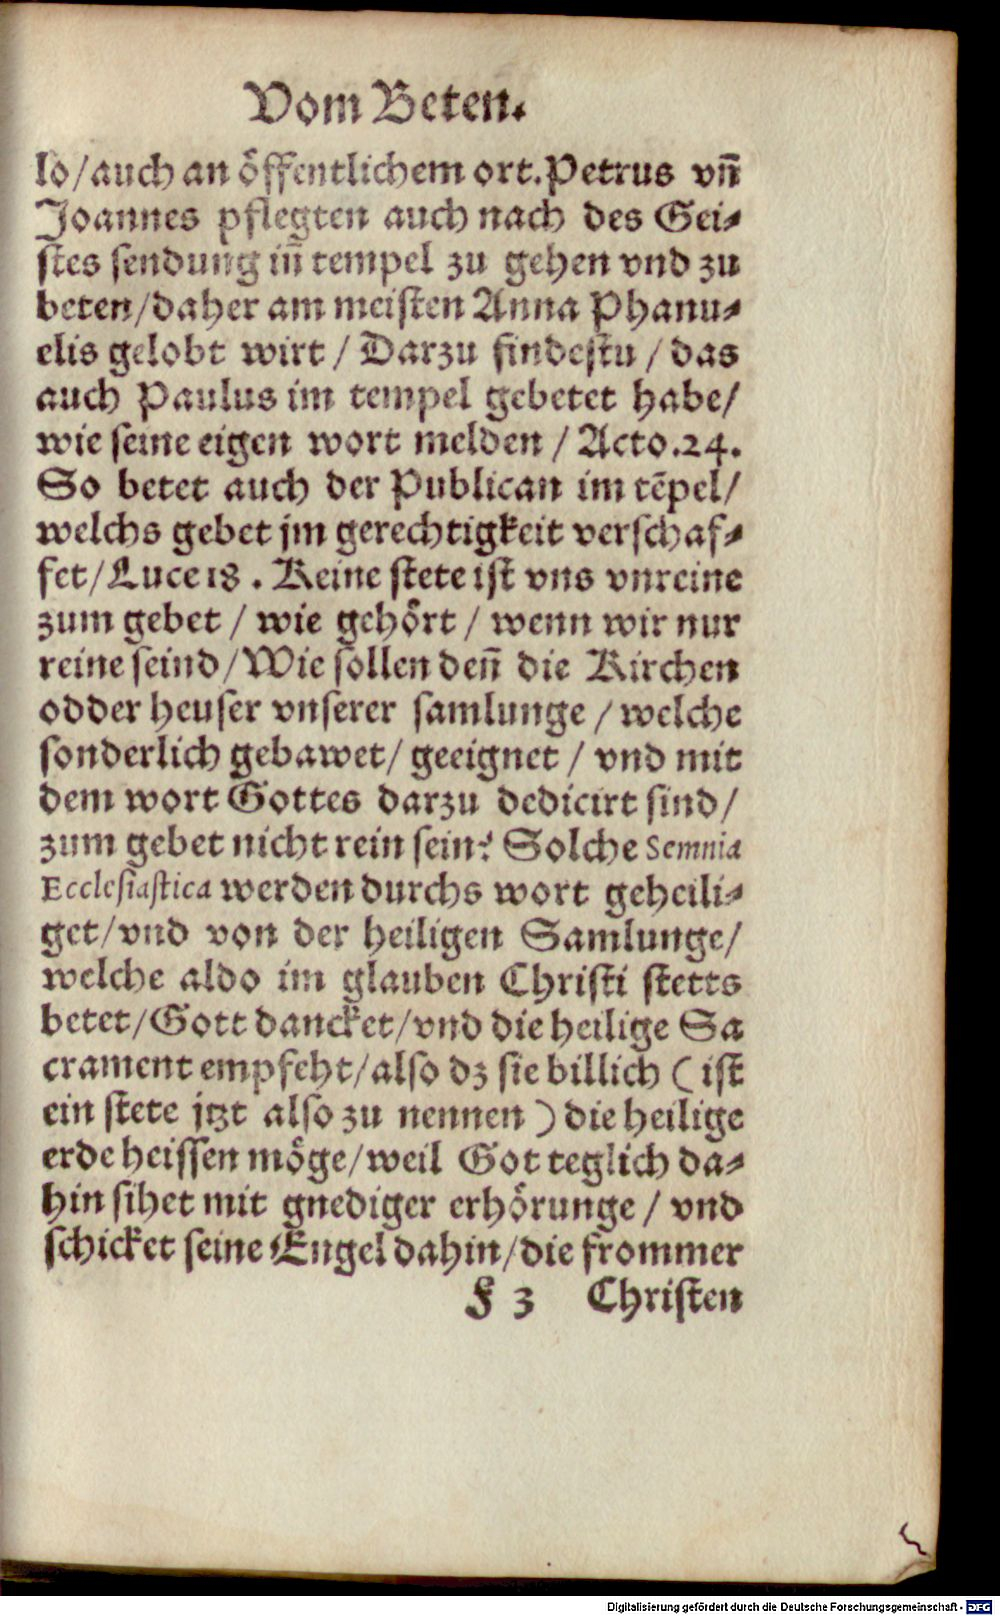 Vom Beten.
lo/auch an öffentlichem ort. Petrus vn̄
Joannes pflegten auch nach des Gei⸗
stes sendung in̄ tempel zu gehen vnd zu
beten/daher am meisten Anna Phanu⸗
elis gelobt wirt / Darzu findestu / das
auch Paulus im tempel gebetet habe/
wie seine eigen wort melden / Acto.24.
So betet auch der Publican im tēpel/
welchs gebet jm gerechtigkeit verschaf⸗
fet/Luce 18. Keine stete ist vns vnreine
zum gebet / wie gehört / wenn wir nur
reine seind/Wie sollen den̄ die Kirchen
odder heuser vnserer samlunge / welche
sonderlich gebawet/ geeignet / vnd mit
dem wort Gottes darzu dedicirt sind/
zum gebet nicht rein sein? Solche Semnia
Ecclesiastica werden durchs wort geheili⸗
get/vnd von der heiligen Samlunge/
welche aldo im glauben Christi stetts
betet/Gott dancket/vnd die heilige Sa
crament empfeht/also dz sie billich (ist
ein stete jtzt also zu nennen) die heilige
erde heissen möge/weil Got teglich da⸗
hin sihet mit gnediger erhörunge / vnd
schicket seine Engel dahin/die frommer
F 3 Christen
Digitalisierung gefördert durch die Deutsche Forschungsgemeinschaft - DFG